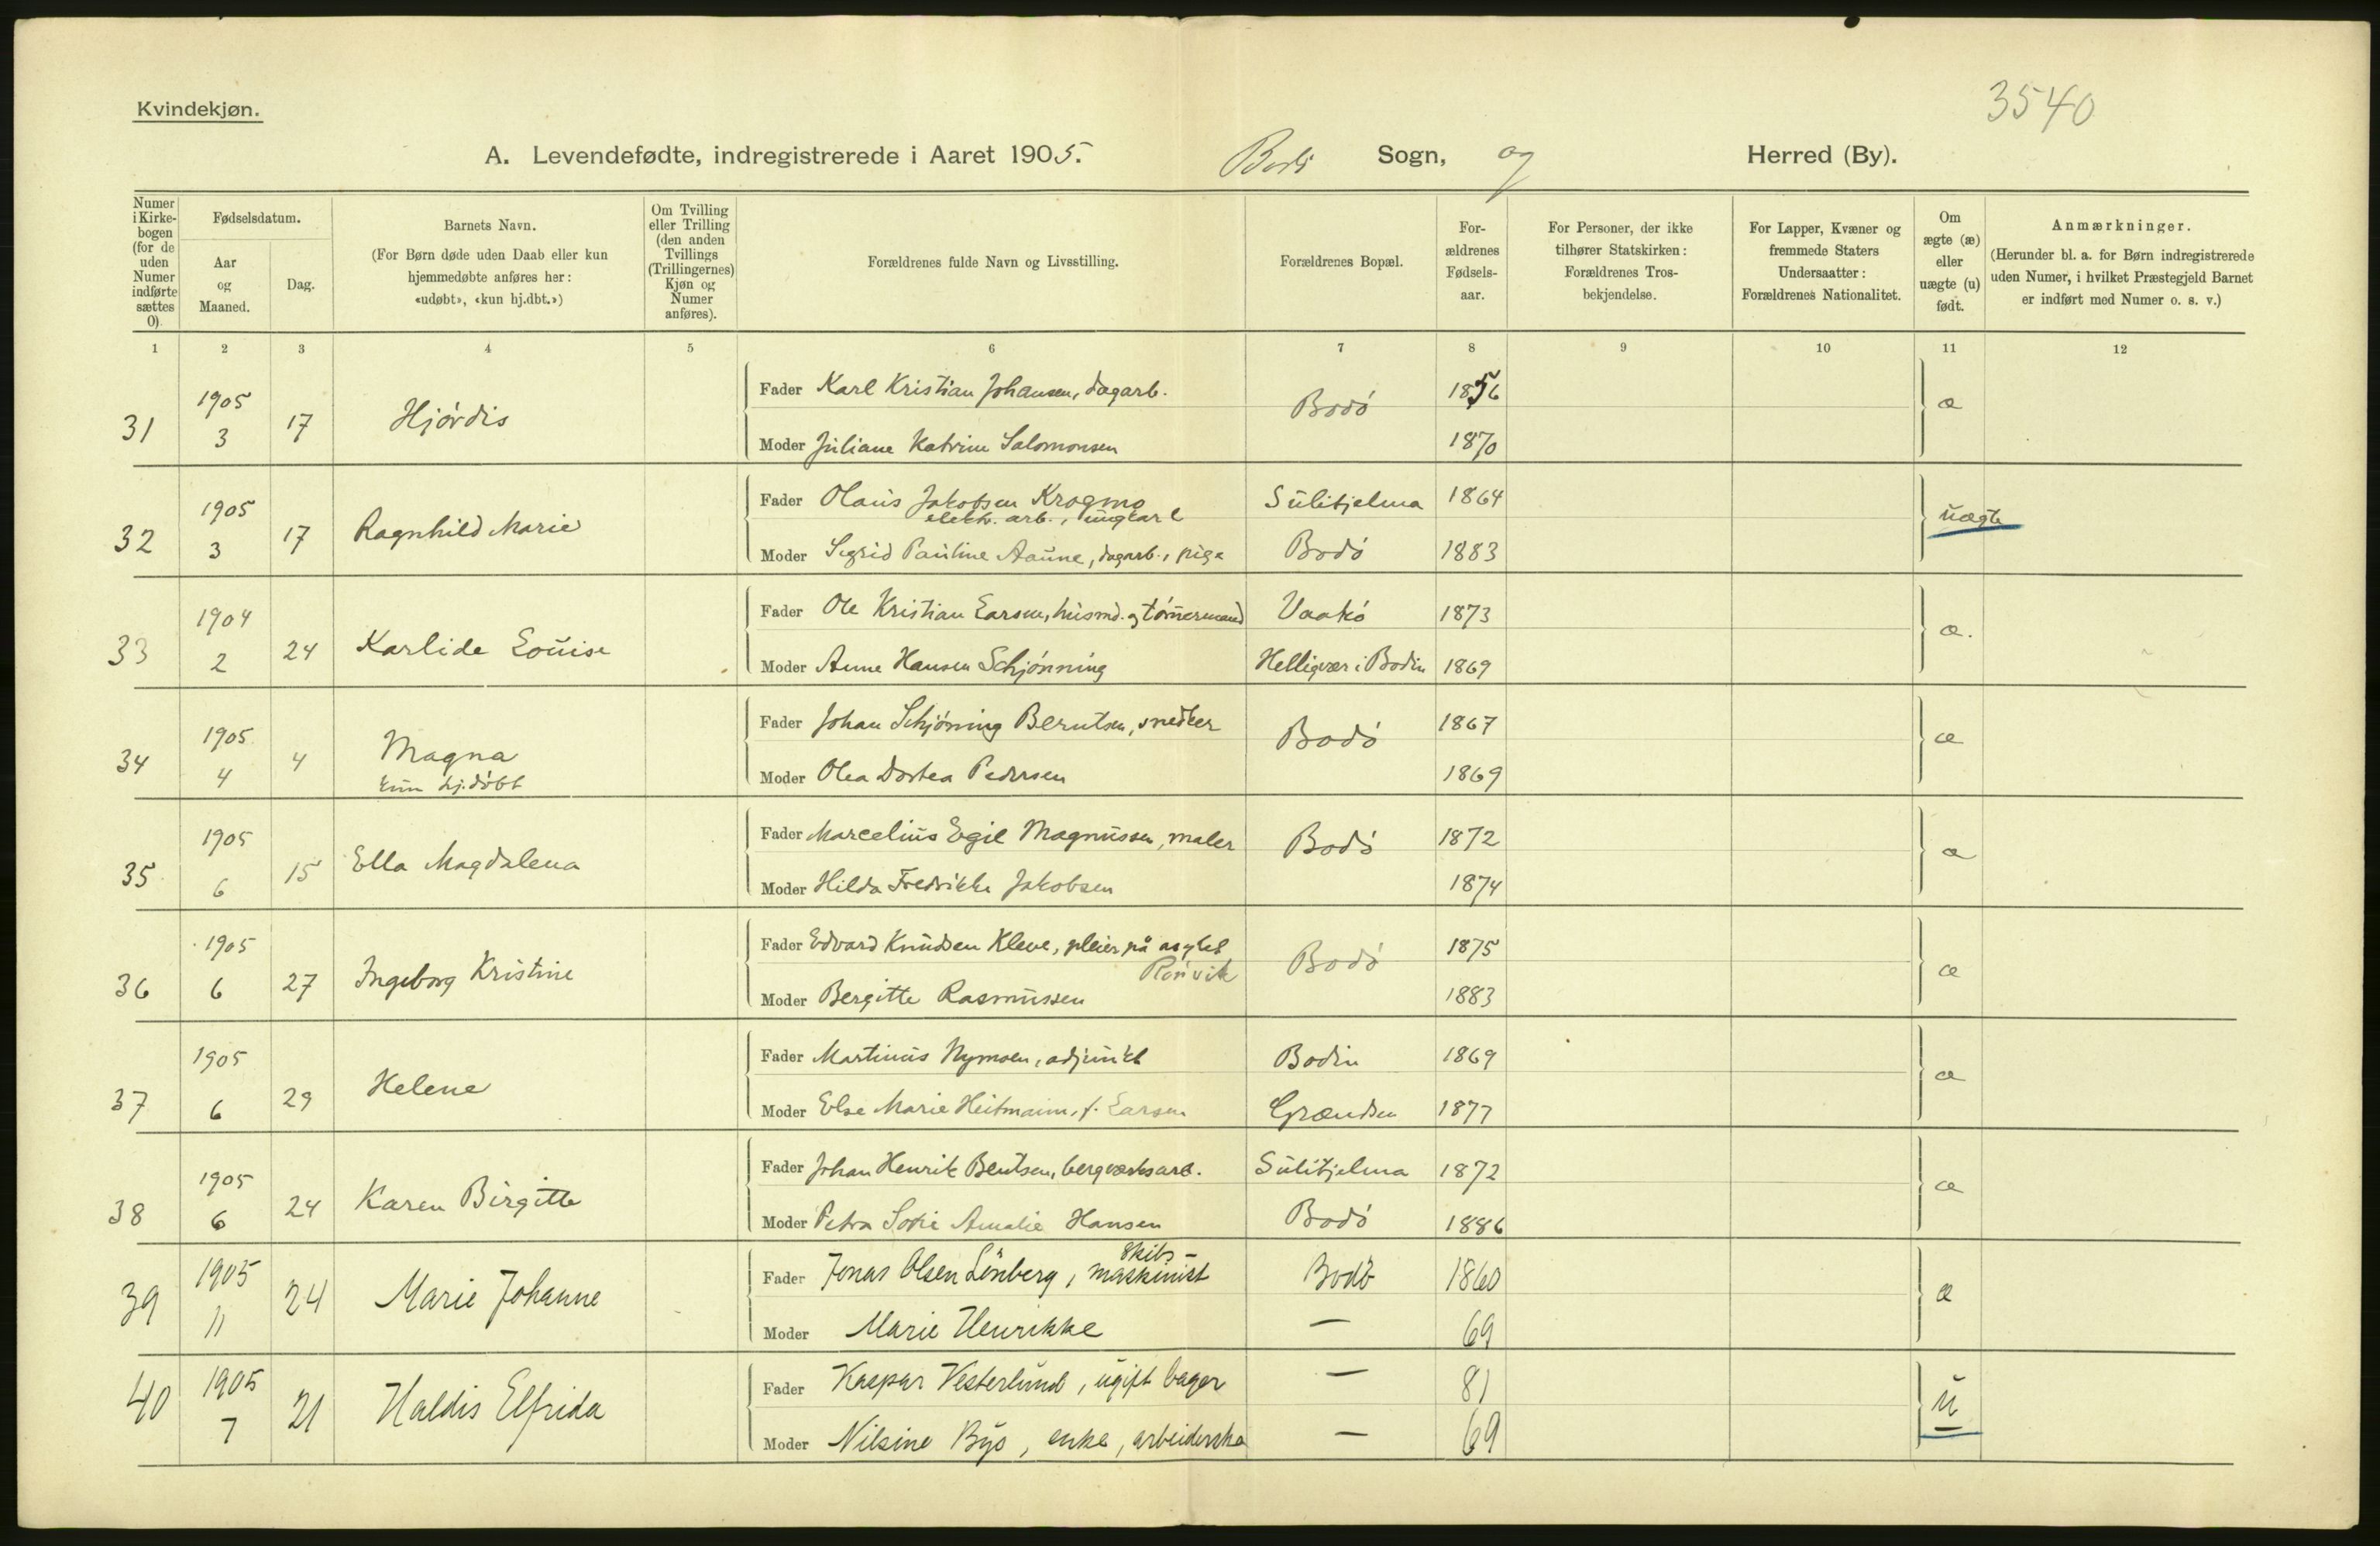 3540
Kvindekjøn.
A. Levendefødte, indregistrerede i Aaret 1905. Bodö Sogn, og Herred (By).
Numer i Kirkebogen (for de uden Numer indførte sættes 0).
Fødselsdatum.
Aar og Maaned.
Dag.
Barnets Navn.
(For Børn døde uden Daab eller kun hjemmedøbte anføres her: «udøbt», «kun hj.dbt.»)
Om Tvilling eller Trilling (den anden Tvillings (Trillingernes) Kjøn og Numer anføres).
Forældrenes fulde Navn og Livsstilling.
Forældrenes Bopæl.
Forældrenes Fødselsaar.
For Personer, der ikke tilhører Statskirken: Forældrenes Trosbekjendelse.
For Lapper, Kvæner og fremmede Staters Undersaatter: Forældrenes Nationalitet.
Om ægte (æ) eller uægte (u) født.
Anmærkninger.
(Herunder bl. a. for Børn indregistrerede uden Numer, i hvilket Præstegjeld Barnet er indført med Numer o. s. v.)
1 2 3 4 5 6 7 8 9 10 11 12
31 1905 3 17 Hjördis
Fader Karl Kristian Johansen, dagarb. Bodö 1856 æ
Moder Juliane Katrine Salomonsen 1870
32 1905 3 17 Ragnhild Marie
Fader Olaus Jakobsen Krogmo Sulitjelma 1864 uægte
elektr. arb., ungkarl
Moder Sigrid Pauline Aaune, dagarb., pige Bodö 1883
33 1904 2 24 Karlide Louise
Fader Ole Kristian Larsen, husmd. og tömermand Vaakö 1873 æ.
Moder Anne Hansen Schjönning Helligvær i Bodin 1869
34 1905 4 4 Magna
kun hj.döbt
Fader Johan Schjöning Berntsen, snedker Bodö 1867 æ
Moder Olea Dortea Pedersen 1869
35 1905 6 15 Ella Magdalena
Fader Marcelius Egil Magnussen, maler Bodö 1872 æ
Moder Hilda Fredrikke Jakobsen 1874
36 1905 6 27 Ingeborg Kristine
Fader Edvard Knudsen Kleve, pleier på asylet Rönvik Bodö 1875 æ
Moder Bergitte Rasmussen 1883
37 1905 6 29 Helene
Fader Martinus Nymoen, adjunkt Bodin 1869 æ
Moder Else Marie Heitmann, f. Larsen Grændsen 1877
38 1905 6 24 Karen Birgitte
Fader Johan Henrik Bentsen, bergværksarb. Sulitjelma 1872 æ
Moder Petra Sofie Amalie Hansen Bodö 1886
39 1905 11 24 Marie Johanne
Fader Jonas Olsen Lönberg, skibs-maskinist Bodö 1860 æ
Moder Marie Henrikke — 69
40 1905 7 21 Haldis Elfrida
Fader Kaspar Vesterlund, ugift bager — 81 u
Moder Nilsine Bys, enke, arbeiderske — 69